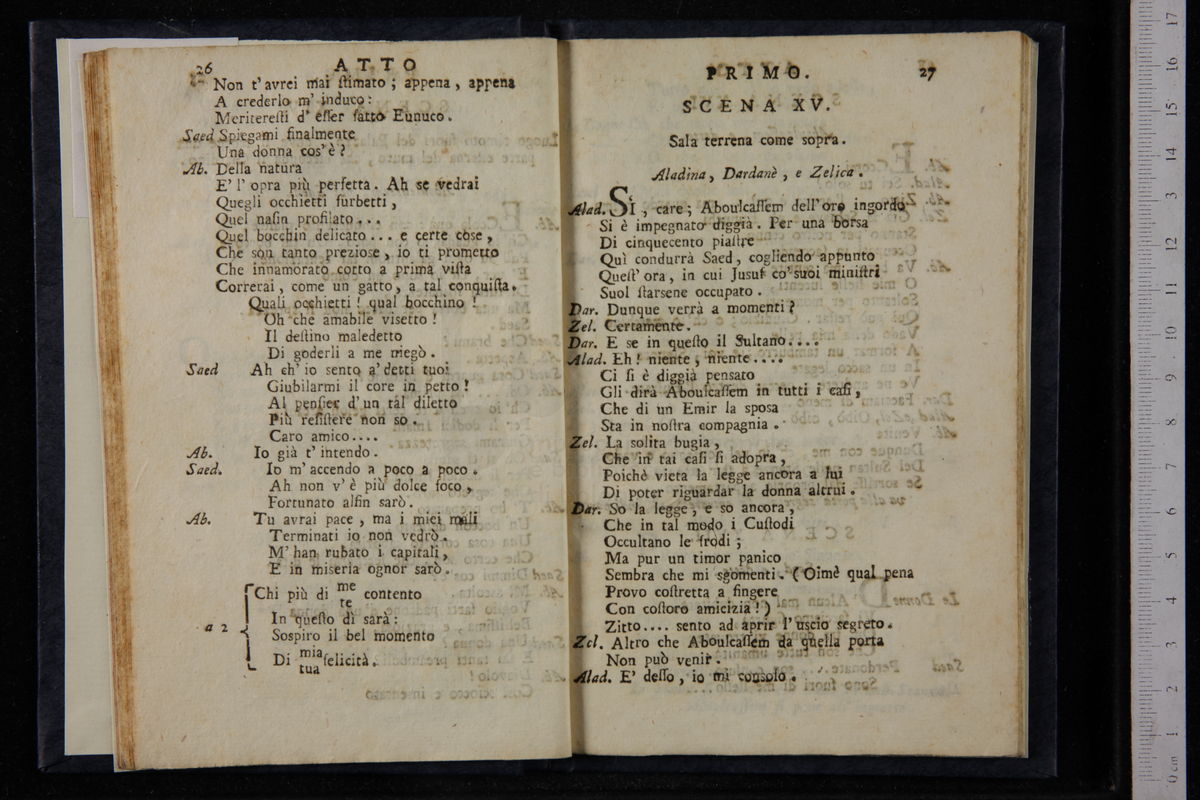 26 ATTO
Non t'avrei mai ſtimato ; appena , appena
A crederlo m' induco :
Meritereſti d' eſſer fatto Eunuco .
Saed Spiegami finalmente
Una donna cos'è ?
Ab. Della natura
E' l' opra più perfetta . Ah se vedrai
Quegli occhietti furbetti ,
Quel naſin profilato ...
Quel bocchin delicato ... e certe cose ,
Che son tanto preziose , io ti prometto
Che innamorato cotto a prima viſta
Correrai , come un gatto , a tal conquiſta .
Quali occhietti ! qual bocchino !
Oh che amabile visetto !
Il deſtino maledetto
Di goderli a me niegò .
Saed Ah ch' io sento a' detti tuoi
Giubilarmi il core in petto !
Al penſier d'un tal diletto
Più reſiſtere non so .
Caro amico ....
Ab. Io già t'intendo .
Saed. Io m'accendo a poco a poco .
Ah non v'è più dolce foco ,
Fortunato alfin sarò .
Ab. Tu avrai pace , ma i miei mali
Terminati io non vedrò .
M' han rubato i capitali ,
E in miseria ognor sarò .
Chi più di me contento
te
In queſto dì sarà :
a 2 Sospiro il bel momento
Di mia felicità .
tua
PRIMO. 27
SCENA XV.
Sala terrena come sopra .
Aladina , Dardanè , e Zelica .
Alad. Sì , care ; Aboulcaſſem dell'oro ingordo
Si è impegnato diggià . Per una borsa
Di cinquecento piaſtre
Quì condurrà Saed , cogliendo appunto
Queſt' ora , in cui Jusuf co'suoi miniſtri
Suol ſtarsene occupato .
Dar. Dunque verrà a momenti ?
Zel. Certamente .
Dar. E se in queſto il Sultano ....
Alad. Eh ! niente , niente ....
Ci ſi è diggià pensato
Gli dirà Aboulcaſſem in tutti i caſi ,
Che di un Emir la sposa
Sta in noſtra compagnia .
Zel. La solita bugia ,
Che in tai caſi ſi adopra ,
Poichè vieta la legge ancora a lui
Di poter riguardar la donna altrui .
Dar. So la legge , e so ancora ,
Che in tal modo i Cuſtodi
Occultano le frodi ;
Ma pur un timor panico
Sembra che mi sgomenti . ( Oimè qual pena
Provo coſtretta a fingere
Con coſtoro amicizia ! )
Zitto .... sento ad aprir l'uscio segreto .
Zel. Altro che Aboulcaſſem da quella porta
Non può venir .
Alad. E' deſſo , io mi consolo .
0 cm 1 2 3 4 5 6 7 8 9 10 11 12 13 14 15 16 17